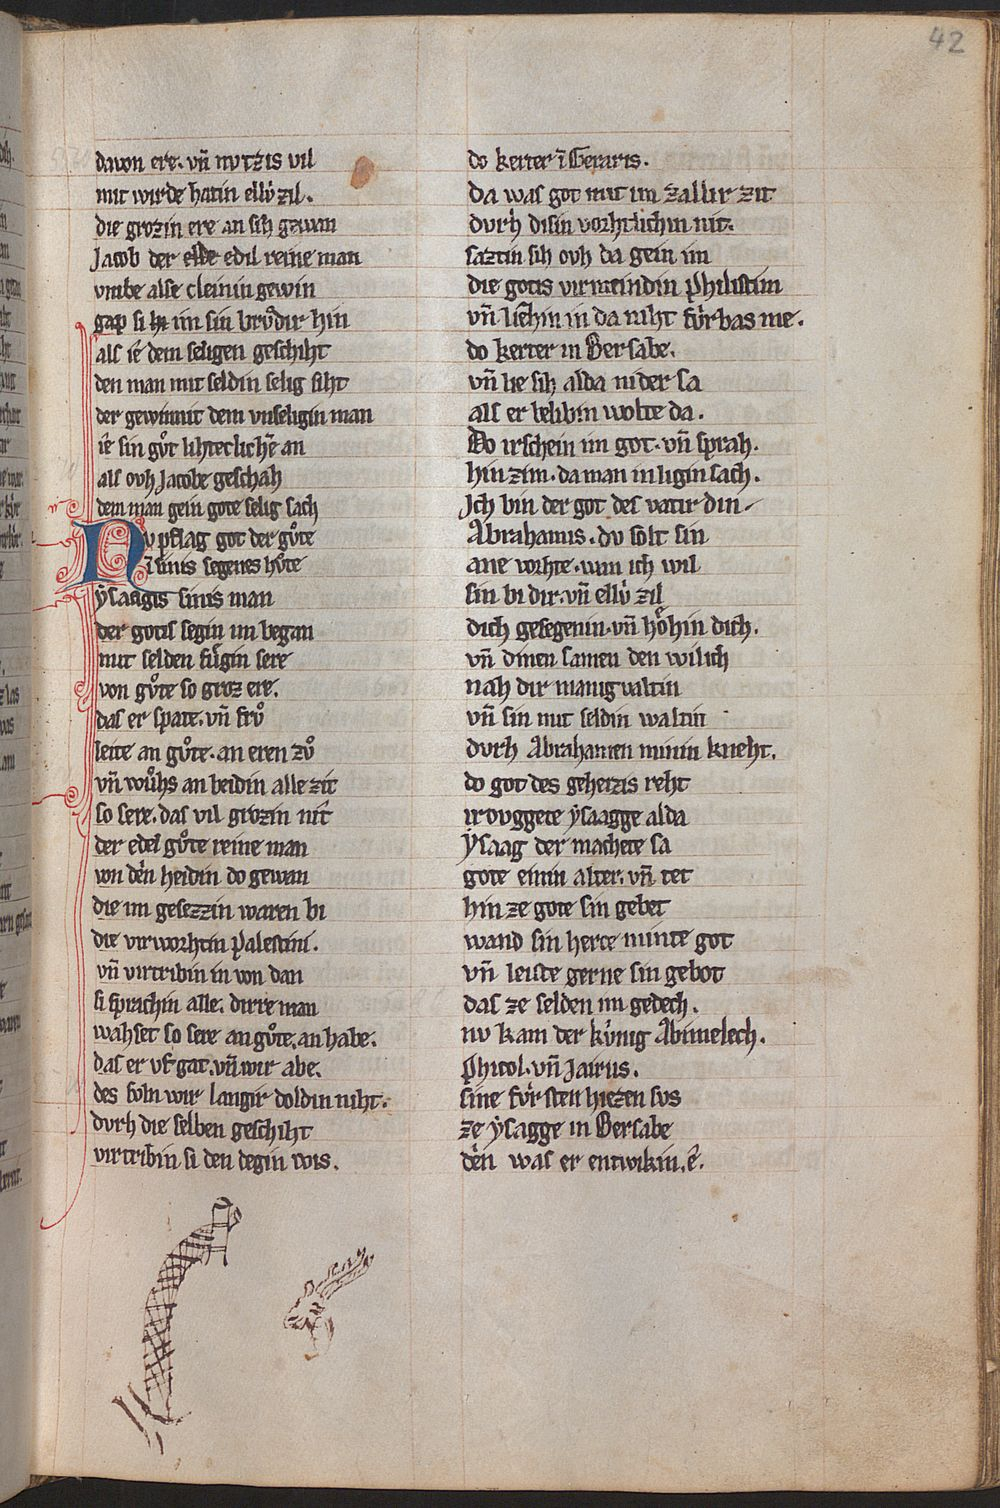 42
davon ere. vn̄ nvtzis vil
mit wirde hatin ellv́ zil.
die grozin ere an sih gewan
Jacob der edil reine man
vmbe alse cleinin gewin
gap si im sin brv̊dir hin
als ie dem seligen geschiht
den man mit seldin selig siht
der gewinnit dem vnseligin man
ie sin gv̊t lihteclichē an
als ovh Jacobe geschah
dem man gein gote selig sach
Nv pflag got der gv̊te
in sinis segenes hv̊te
ẏsaagis sinis man
der gotis segin im began
mit selden fv́gin sere
von gv̊te so groz ere.
das er spate. vn̄ frv̊
leite an gv̊te. an eren zv̊
vn̄ wv̊hs an beidin alle zit
so sere. das vil grozin nit
der edel gv̊te reine man
von den heidin do gewan
die im gesezzin waren bi
die virworhtin palestini.
vn̄ virtribin in von dan
si sprachin alle. dirre man
wahset so sere an gv̊te. an habe.
das er vf gat. vn̄ wir abe.
des soln wir langir doldin niht.
dvrh die selben geschiht
virtribin si den degin wis.
do kerter ī Geraris.
da was got mit im zallir zit
dvrh disin vorhtlichin nit.
saztin sih ovh da gein im
die gotis virmeindin Philistim
vn̄ liezin in da niht fv́rbas me.
do kerter in Bersabe.
vn̄ lie sih alda nider sa
als er belibin wolte da.
Do irschein im got. vn̄ sprah.
hin zim. da man in ligin sach.
Ich bin der got des vatir din
Abrahamis. dv solt sin
ane vorhte. wan ich wil
sin bi dir. vn̄ ellv́ zil
dich gesegenin. vn̄ hohin dich.
vn̄ dinen samen den wil ich
nah dir manigvaltin
vn̄ sin mit seldin waltin
dvrh Abrahamen minin kneht.
do got des geheizis reht
irovggete ẏsaagge alda
ẏsaag der machete sa
gote einin alter. vn̄ tet
hin ze gote sin gebet
wand sin herce minte got
vn̄ leiste gerne sin gebot
das ze selden im gedech.
nv kam der kv́nig Abimelech.
Phicol. vn̄ Jairus.
sine fv́rsten hiezen svs
ze ẏsagge in Bersabe
den was er entwikin. ê.